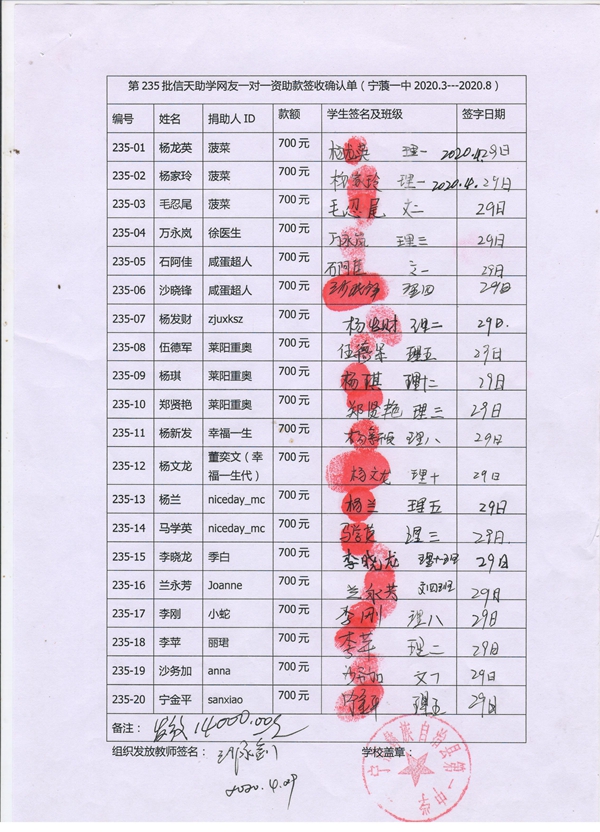 第 235 批信天助学网友一对一资助款签收确认单（宁蒗一中 2020.3---2020.8）
编号 姓名 捐助人 ID 款额 学生签名及班级 签字日期
235-01 杨龙英 菠菜 700 元 杨龙英 理一 2020.4.29日
235-02 杨家玲 菠菜 700 元 杨家玲 理一 2020.4.29日
235-03 毛忍尾 菠菜 700 元 毛忍尾 文二 29日
235-04 万永岚 徐医生 700 元 万永岚 理三 29日
235-05 石阿佳 咸蛋超人 700 元 石阿佳 文一 29日
235-06 沙晓锋 咸蛋超人 700 元 理四 29日
235-07 杨发财 zjuxksz 700 元 杨发财 理二 29日.
235-08 伍德军 莱阳重奥 700 元 伍德军 理五 29日
235-09 杨琪 莱阳重奥 700 元 杨琪 理十二 29日
235-10 郑贤艳 莱阳重奥 700 元 郑贤艳 理三 29日
235-11 杨新发 幸福一生 700 元 杨新发 理八 29日
235-12 杨文龙 董奕文（幸福一生代） 700 元 杨文龙 理十 29日
235-13 杨兰 niceday_mc 700 元 杨兰 理五 29日
235-14 马学英 niceday_mc 700 元 马学英 理三 29日.
235-15 李晓龙 季白 700 元 李晓龙 29日
235-16 兰永芳 Joanne 700 元 兰永芳 文四班 29日
235-17 李刚 小蛇 700 元 李刚 理八 29日
235-18 李苹 丽珺 700 元 李苹 理二 29日
235-19 沙务加 anna 700 元 沙务加 29日
235-20 宁金平 sanxiao 700 元 宁金平 理五 29日
备注： 发放14000.00元
组织发放教师签名： 学校盖章：
2020.4.29
族自治县第一中学